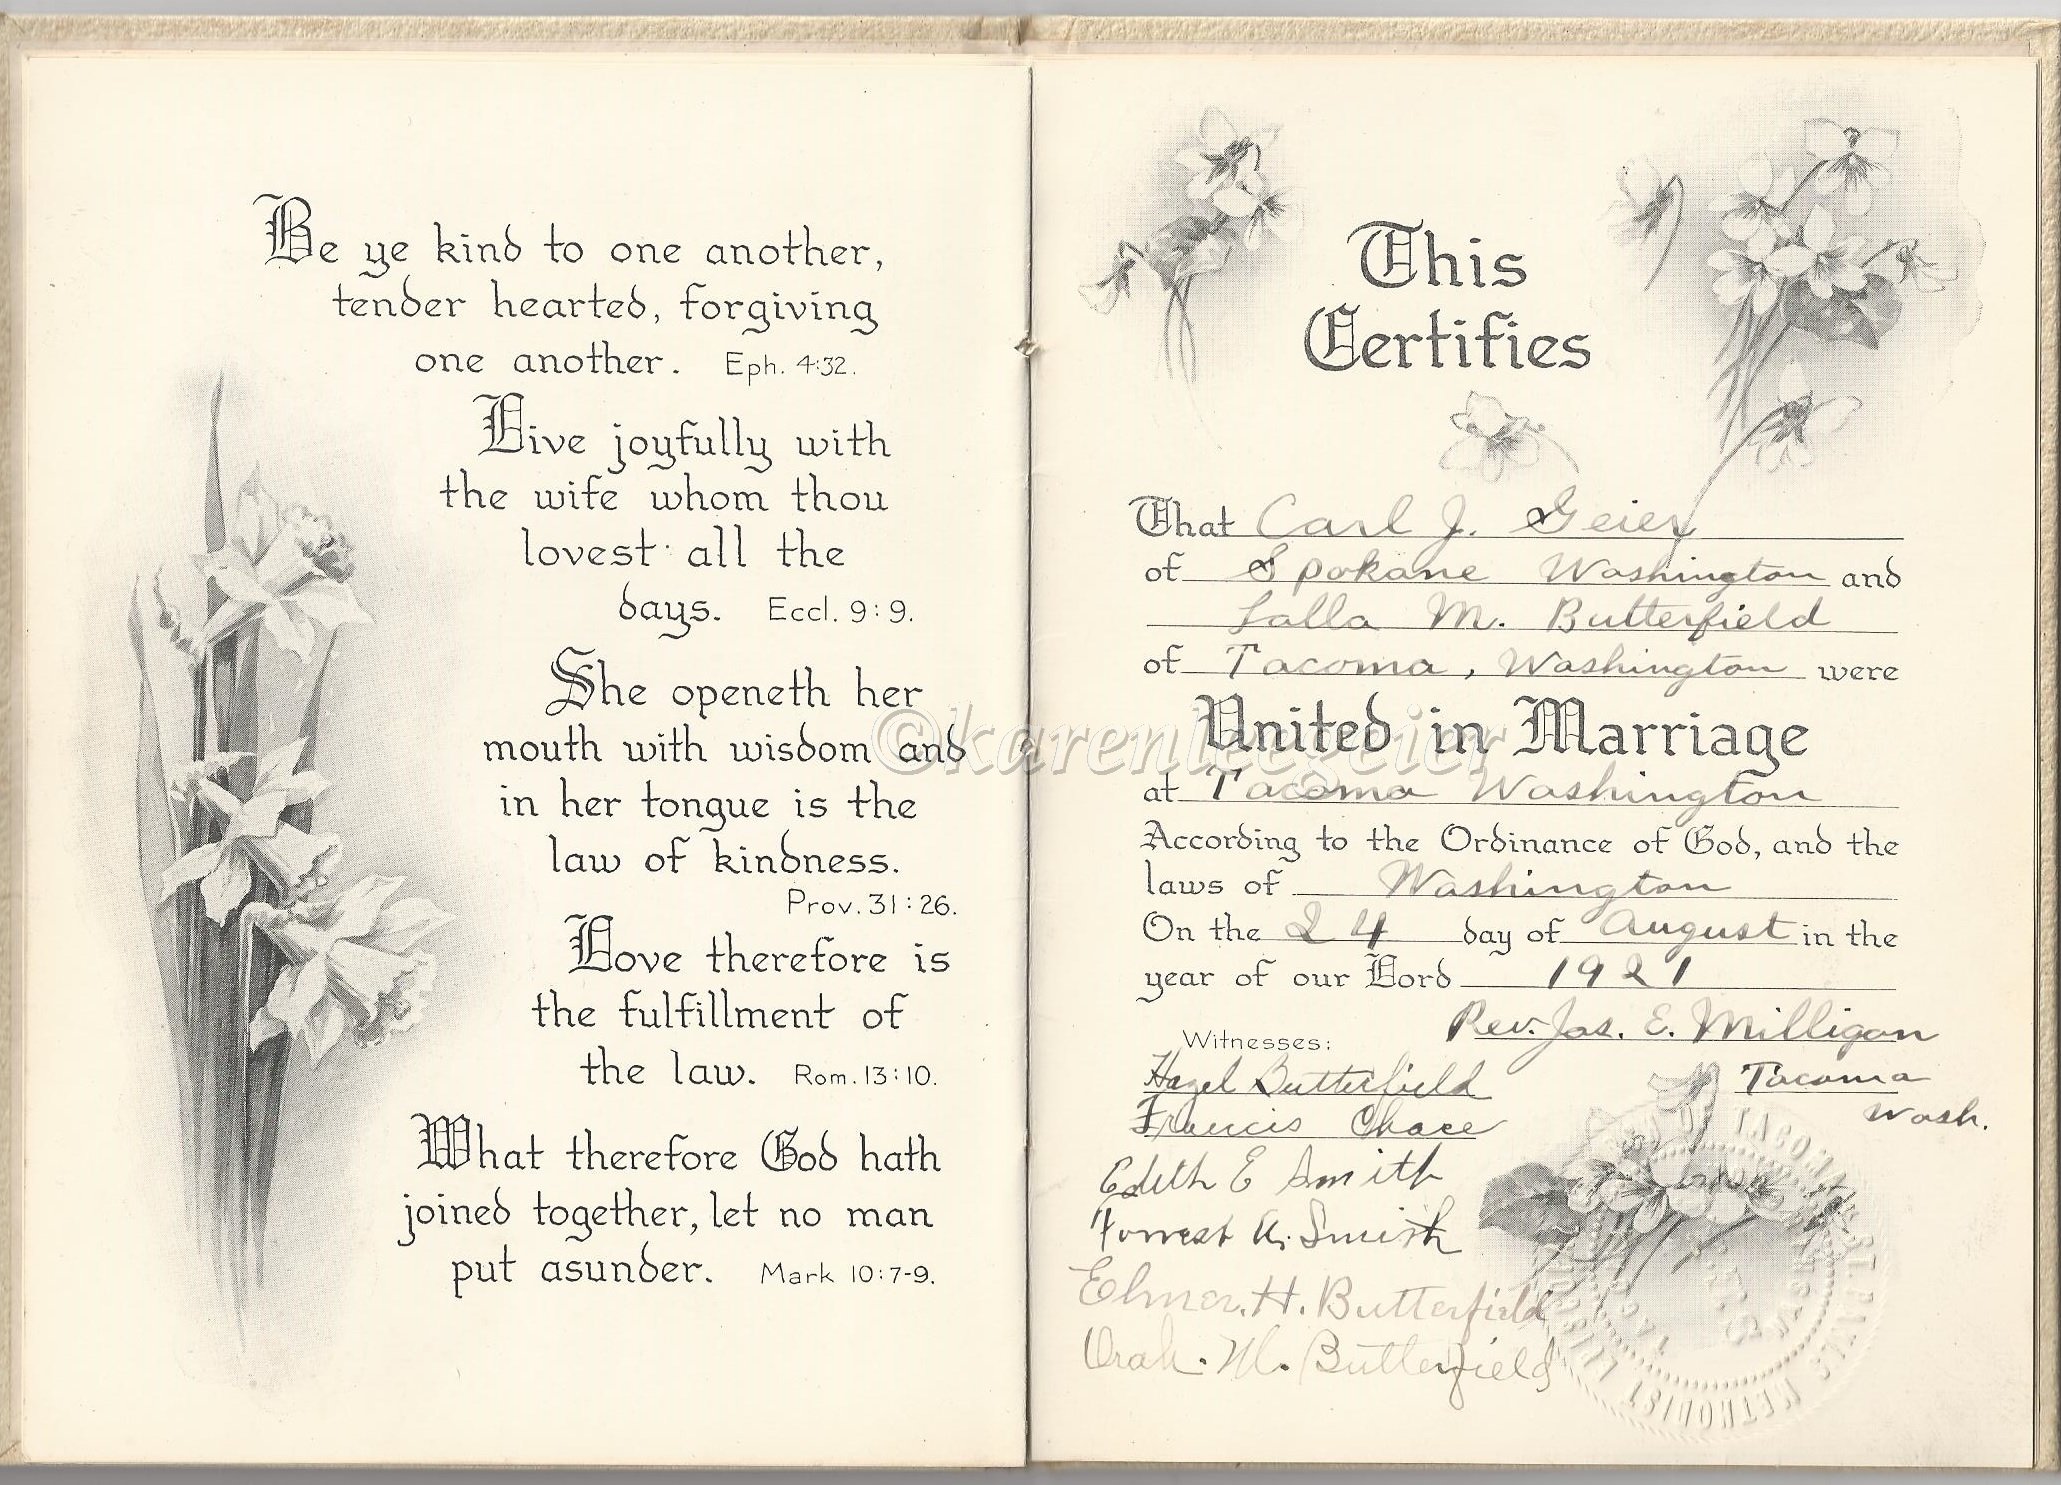 Be ye kind to one another,
tender hearted, forgiving
one another. Eph. 4:32.
Live joyfully with
the wife whom thou
lovest all the
days. Eccl. 9:9.
She openeth her
mouth with wisdom and
in her tongue is the
law of kindness.
Prov. 31:26.
Love therefore is
the fulfillment of
the law. Rom. 13:10.
What therefore God hath
joined together, let no man
put asunder. Mark 10:7-9.
©karenleegeier
This
Certifies
That Carl J. Geier
of Spokane Washington and
Lalla M. Butterfield
of Tacoma, Washington were
United in Marriage
at Tacoma Washington
According to the Ordinance of God, and the
laws of Washington
On the 24 day of August in the
year of our Lord 1921
Rev. Jas. E. Milligan
Witnesses:
Tacoma
Wash.
Hazel Butterfield
Francis Chace
Edith E Smith
Forrest A. Smith
Elmer. H. Butterfield
Orah. M. Butterfield
TACOMA ST. PAULS METHODIST EPISCOPAL